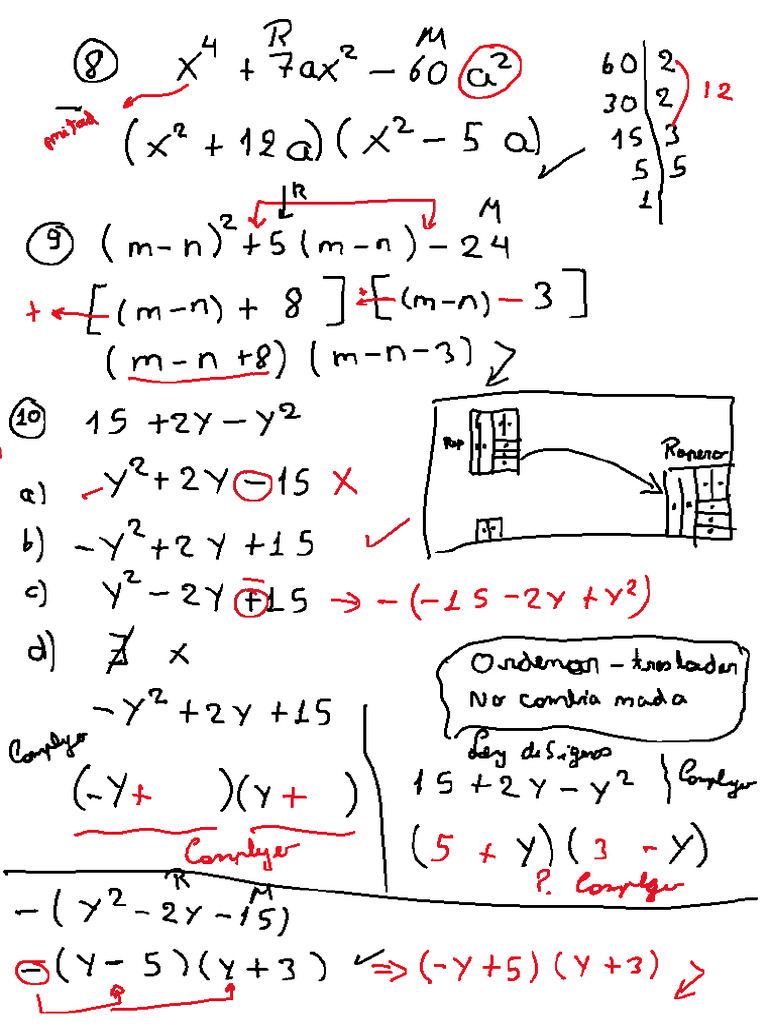 R M
⑧ x⁴ + 7ax² - 60 a²
mitad
(x² + 12a)(x² - 5a)
60 | 2
30 | 2
15 | 3
5 | 5
1 |
12
R M
⑨ (m-n)² + 5(m-n) - 24
+ ← [(m-n) + 8] + ← [(m-n) - 3]
(m-n+8)(m-n-3)
⑩ 15 + 2y - y²
a) y² + 2y - 15 x
b) -y² + 2y + 15 ✓
c) y² - 2y + 15 → -(-15 - 2y + y²)
d) ∄ x
Rop
Ropero
Ordenar - trasladar
No cambia nada
-y² + 2y + 15
Complejo
(-y + )(y + )
Complejo
Ley de Signos
15 + 2y - y² } Complejo
(5 + y)(3 - y)
P. Complejo
R M
-(y² - 2y - 15)
-(y - 5)(y + 3) ✓ ⇒ (-y + 5)(y + 3)